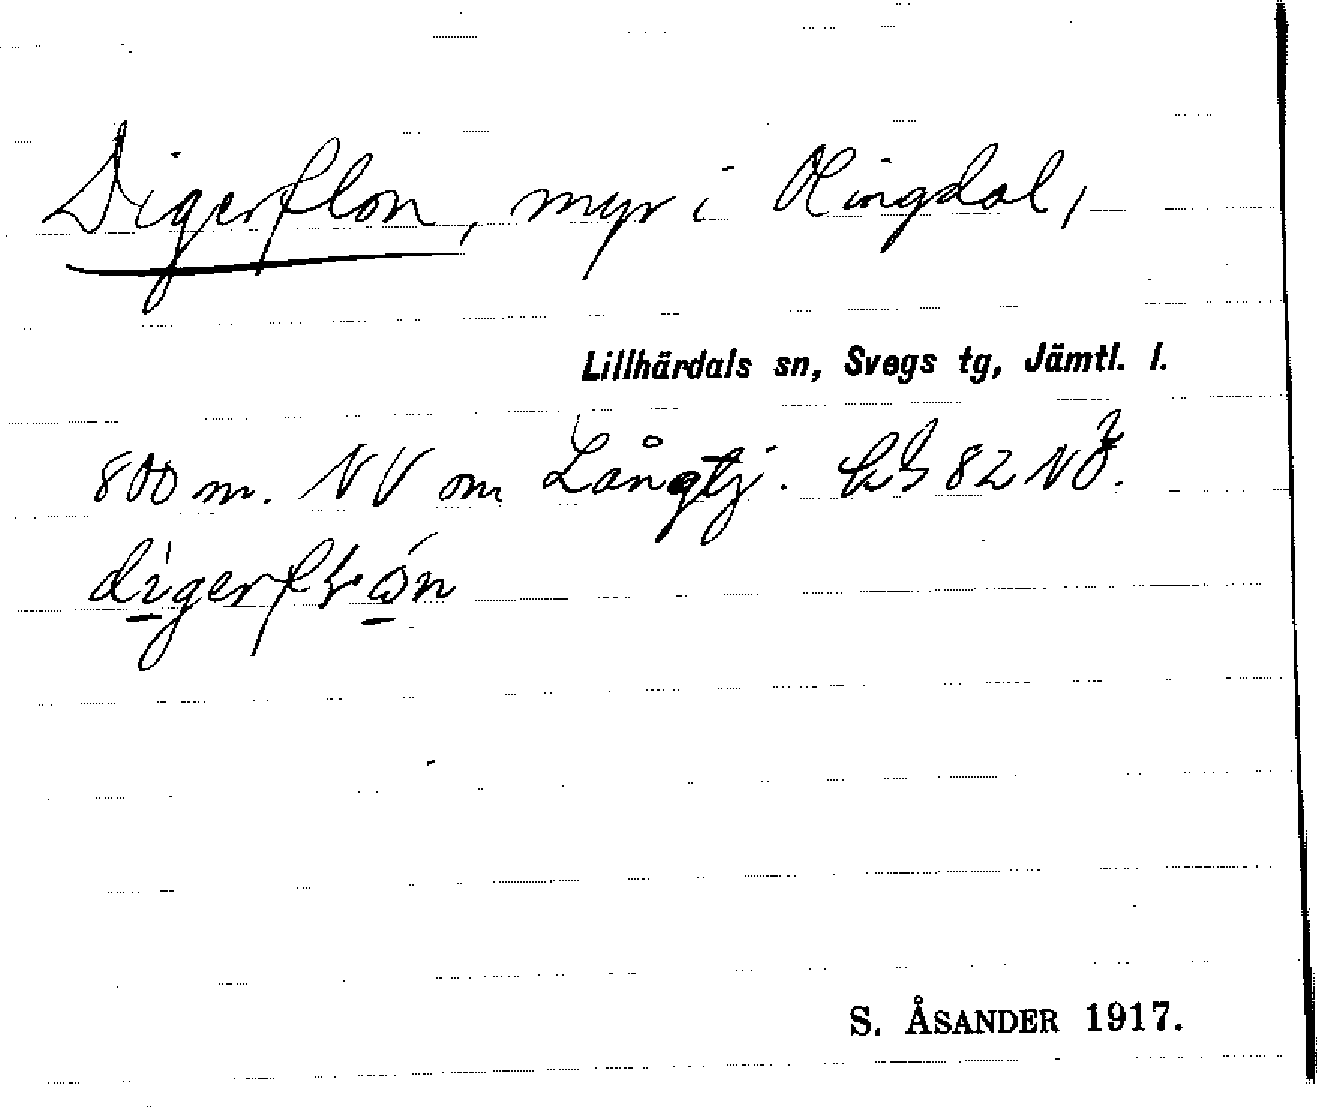 Digerflon, myr i Olingdal,
Lillhärdals sn, Svegs tg, Jämtl. l.
800 m. NV om Långtj. 82 NÖ.
S. ÅSANDER 1917.